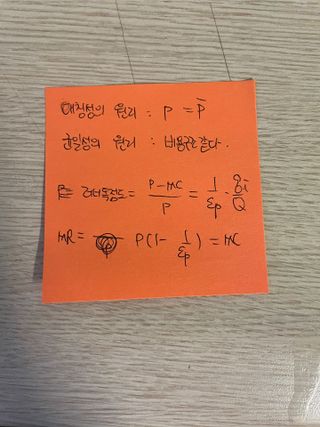 대칭성의 원리 : P = P̄
균일성의 원리 : 비용구조 같다.
러너독점도 = P-MC/P = 1/εp · qi/Q
MR = P(1- 1/εp) = MC